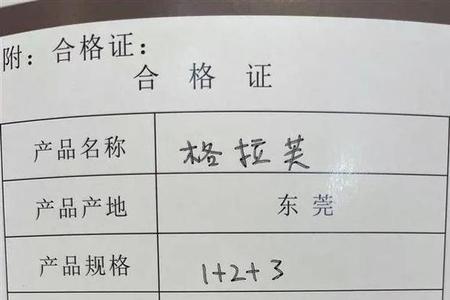 附：合格证：
合格证
产品名称 格拉芙
产品产地 东莞
产品规格 1+2+3